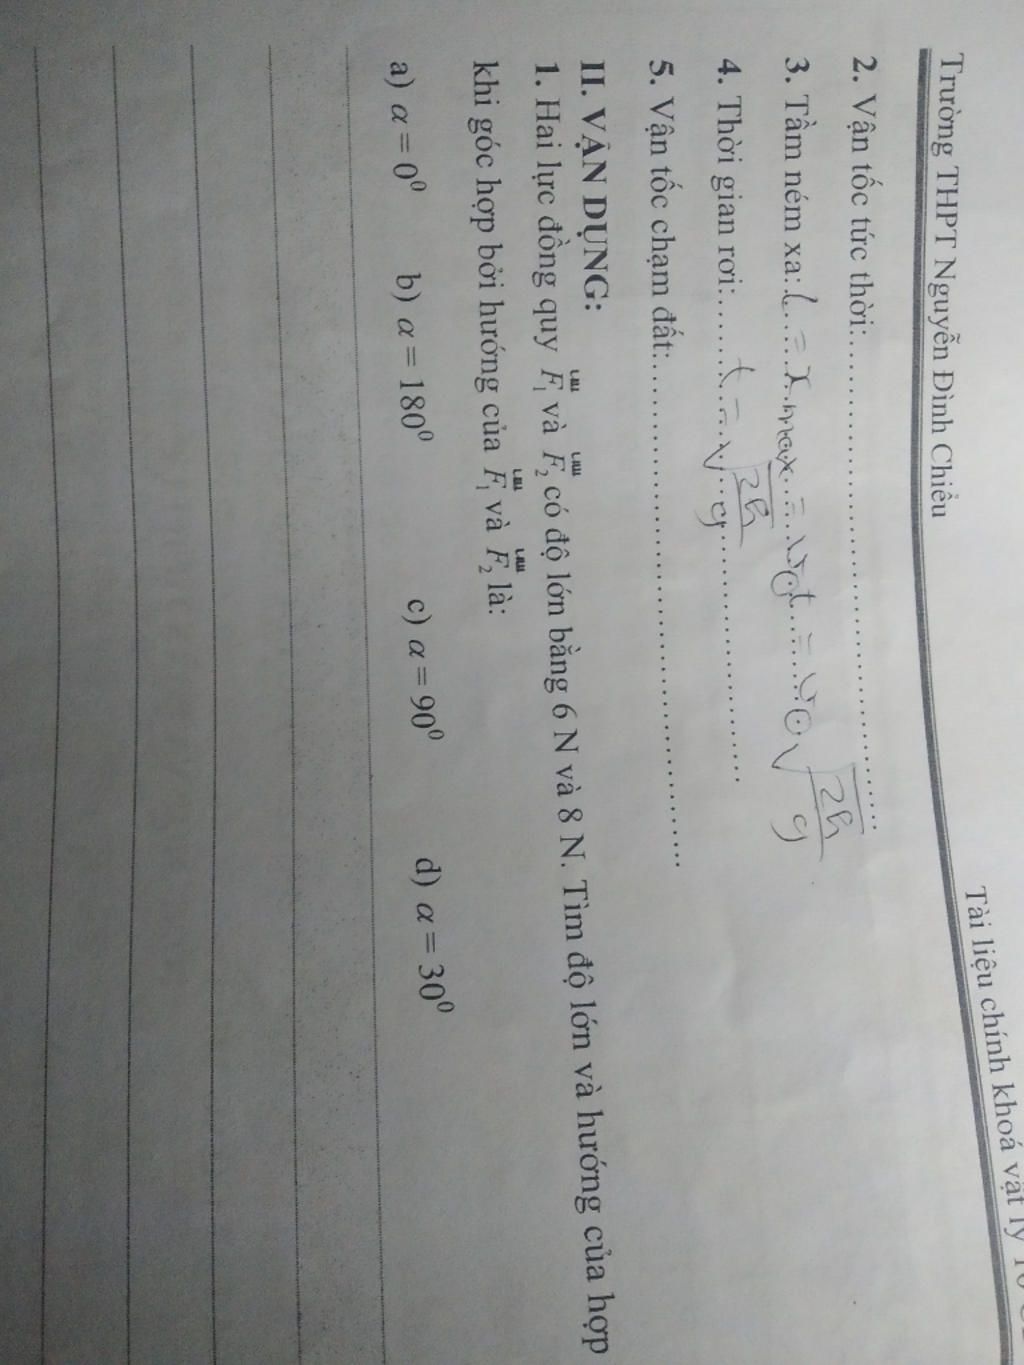 Trường THPT Nguyễn Đình Chiểu
Tài liệu chính khoá vật lý 10
2. Vận tốc tức thời:
3. Tầm ném xa: L = x max = v0t = v0√2h/g
4. Thời gian rơi: t = √2h/g
5. Vận tốc chạm đất:
II. VẬN DỤNG:
1. Hai lực đồng quy F₁ và F₂ có độ lớn bằng 6 N và 8 N. Tìm độ lớn và hướng của hợp
khi góc hợp bởi hướng của F₁ và F₂ là:
a) α = 0⁰ b) α = 180⁰ c) α = 90⁰ d) α = 30⁰